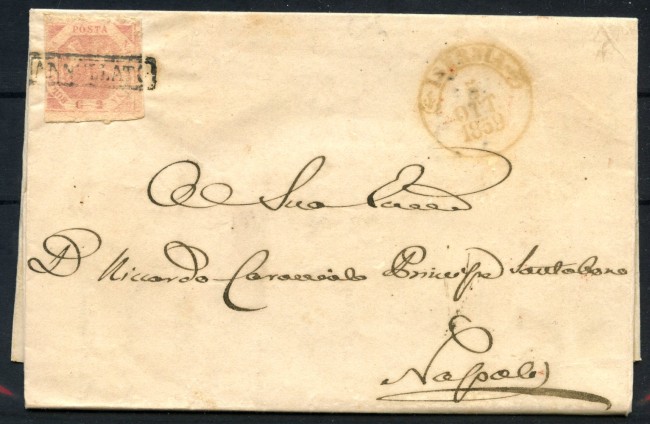 POSTA
ANNULLATO
G 2
OTT
1859
Al Sua Ecced
D. Riccardo Caracciolo Principe Santobono
Napoli